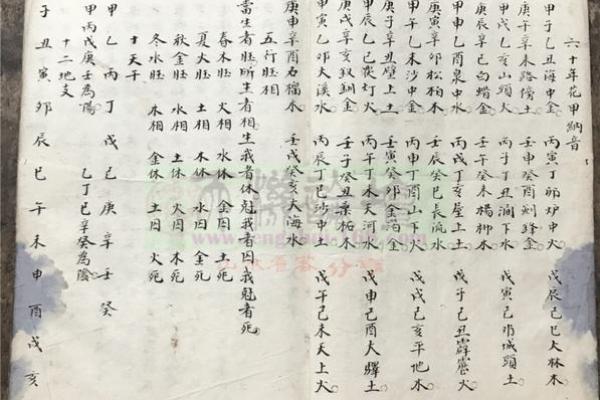 六十年花甲納音
甲子乙丑海中金 丙寅丁卯炉中火 戊辰己巳大林木
庚午辛未路傍土 壬申癸酉剑鋒金
甲戌乙亥山頭火 丙子丁丑澗下水 戊寅己卯城頭土
庚辰辛巳白蜡金 壬午癸未楊柳木
甲申乙酉泉中水 丙戌丁亥屋上土 戊子己丑霹靂火
庚寅辛卯松柏木 壬辰癸巳長流水
甲午乙未沙中金 丙申丁酉山下火 戊戌己亥平地木
庚子辛丑壁上土 壬寅癸卯金箔金
甲辰乙巳覆灯火 丙午丁未天河水 戊申己酉大驛土
庚戌辛亥釵釧金 壬子癸丑桑柘木
甲寅乙卯大溪水 丙辰丁巳沙中土 戊午己未天上火
庚申辛酉石榴木 壬戌癸亥大海水
五行旺相
當生者旺所生者相生我者休尅我者囚我尅者死
春木旺 火相 水休 金囚 土死
夏火旺 土相 木休 水囚 金死
秋金旺 水相 土休 火囚 木死
冬水旺 木相 金休 土囚 火死
十天干
甲乙丙丁戊己庚辛壬癸
甲丙戊庚壬為陽 乙丁己辛癸為陰
十二地支
子丑寅卯辰巳午未申酉戌亥